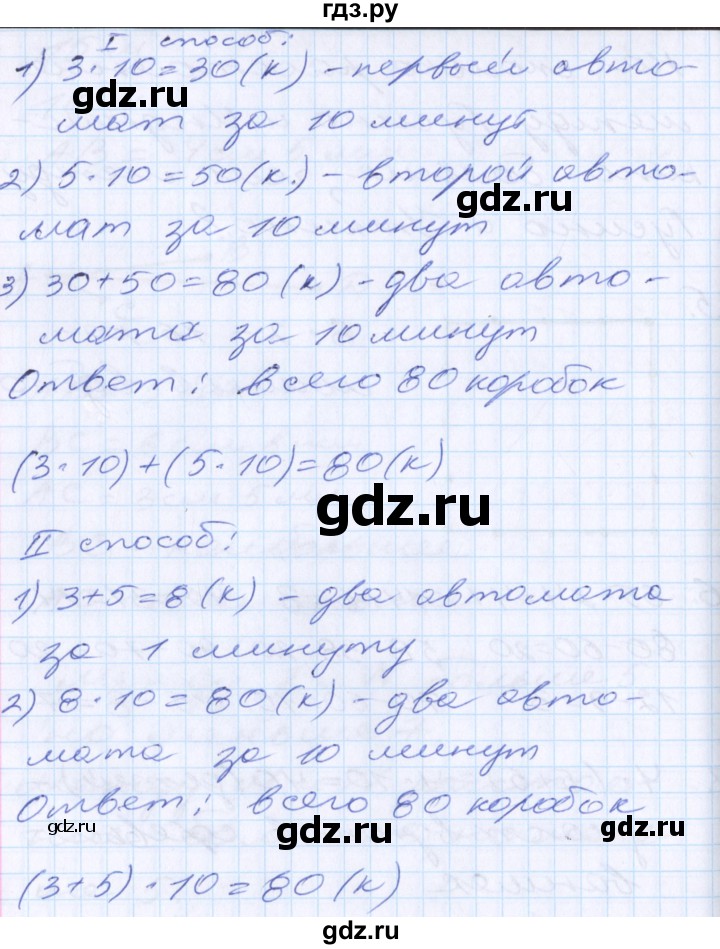 гдз.ру
I способ:
1) 3·10=30(к) – первый авто-
мат за 10 минут
2) 5·10=50(к.) – второй авто-
мат за 10 минут
3) 30+50=80(к) – два авто-
мата за 10 минут
Ответ: всего 80 коробок
(3·10)+(5·10)=80(к)
II способ:
1) 3+5=8(к) – два автомата
за 1 минуту
2) 8·10=80(к) – два авто-
мата за 10 минут
Ответ: всего 80 коробок
(3+5)·10=80(к)
gdz.ru
gdz.ru
gdz.ru
gdz.ru
gdz.ru
gdz.ru
gdz.ru
gdz.ru